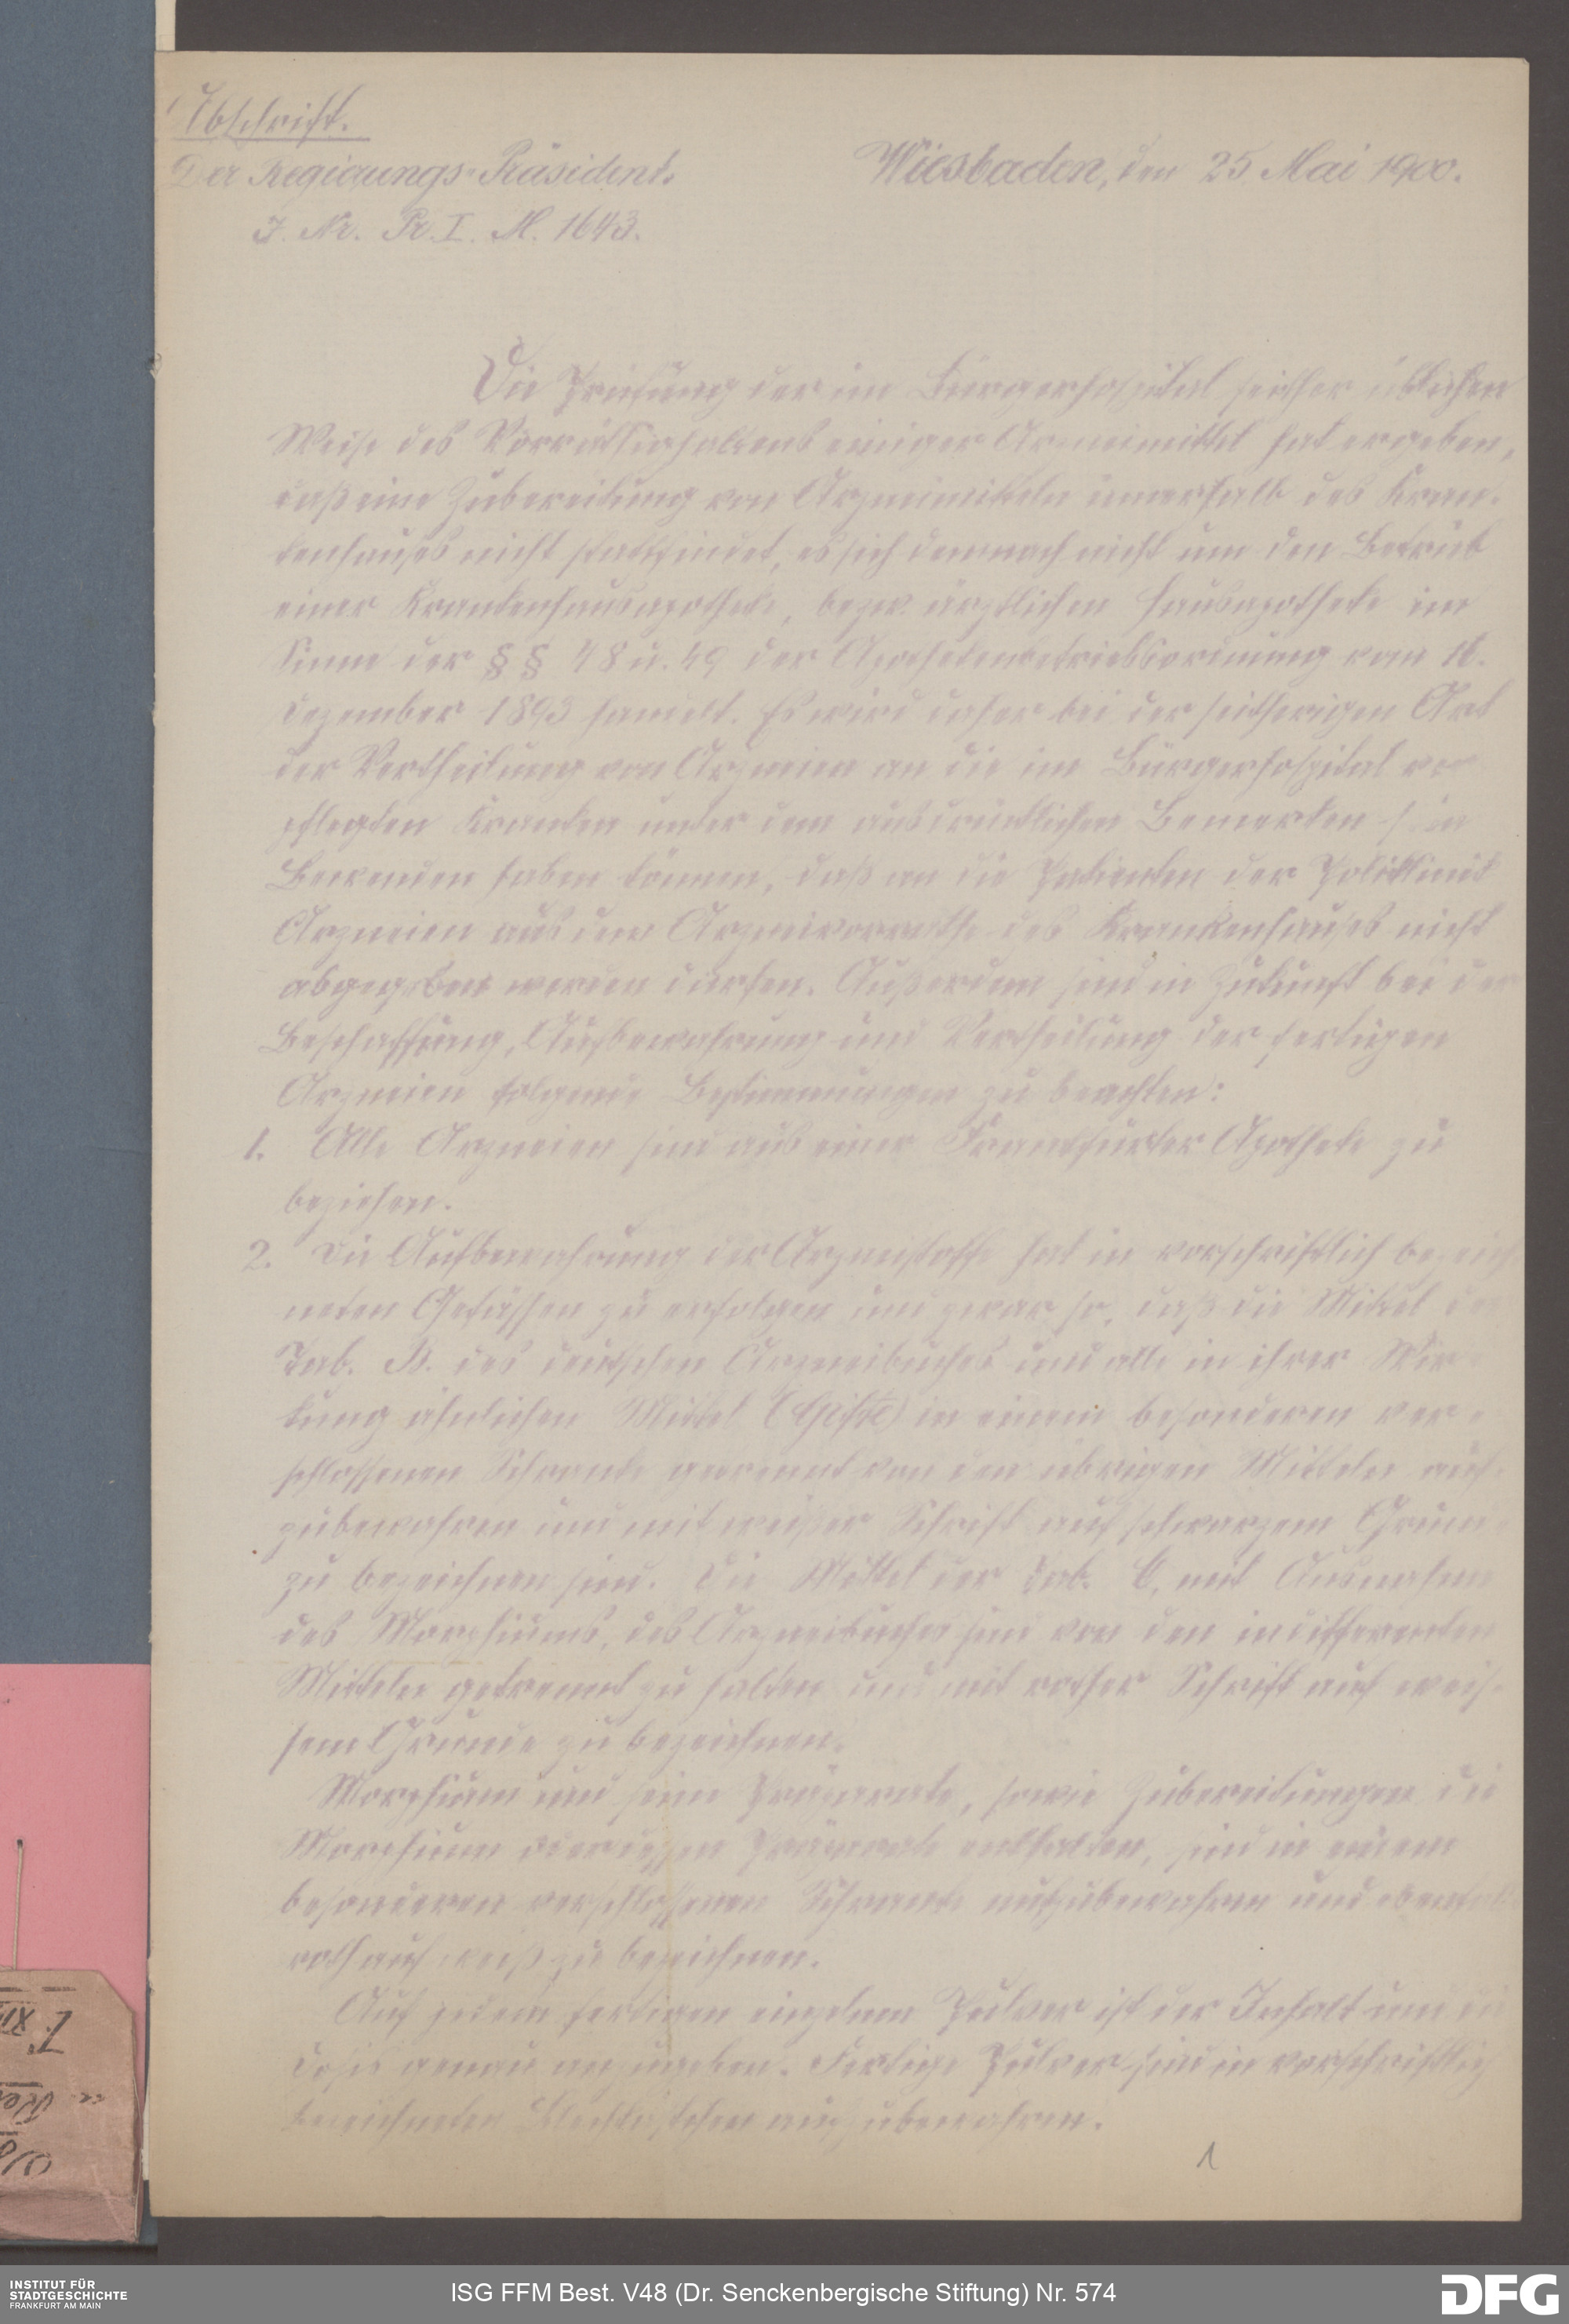 Abschrift.
Der Regierungs-Präsident.
Wiesbaden, den 25 Mai 1900.
J. Nr. Pr. I. M. 1643.
Die Prüfung der im Bürgerhospital seither üblichen
Weise des Vorräthighaltens einiger Arzneimittel hat ergeben,
daß eine Zubereitung von Arzneimitteln innerhalb des Kran-
kenhauses nicht stattfindet, es sich demnach nicht um den Betrieb
einer Krankenhausapotheke, bezw. ärztlichen Hausapotheke im
Sinne der §§ 48 u. 49 der Apothekenbetriebsordnung vom 16.
Dezember 1893 handelt. Es wird daher bei der seitherigen Art
der Vertheilung von Arzneien an die im Bürgerhospital ver-
pflegten Kranken unter dem ausdrücklichen Bemerken sein
Bewenden haben können, daß an die Patienten der Poliklinik
Arzneien aus dem Arzneivorrathe des Krankenhauses nicht
abgegeben werden dürfen. Außerdem sind in Zukunft bei der
Beschaffung, Aufbewahrung und Vertheilung der fertigen
Arzneien folgende Bestimmungen zu beachten:
1. Alle Arzneien sind aus einer Frankfurter Apotheke zu
beziehen.
2. Die Aufbewahrung der Arzneistoffe hat in vorschriftlich bezeich-
neten Gefässen zu erfolgen und zwar so, daß die Mittel der
Tab. B. des deutschen Arzneibuches und alle in ihrer Wir-
kung ähnlichen Mittel (Gifte) in einem besonderen ver-
schlossenen Schranke getrennt von den übrigen Mitteln auf-
zubewahren und mit weißer Schrift auf schwarzem Grunde
zu bezeichnen sind. Die Mittel der Tab. C, mit Ausnahme
des Morphiums, des Arzneibuches sind von den indifferenten
Mitteln getrennt zu halten und mit rother Schrift auf weis-
sem Grunde zu bezeichnen.
Morphium und seine Präparate, sowie Zubereitungen die
Morphium oder dessen Präparate enthalten, sind in einem
besonderen verschlossenen Schranke aufzubewahren und ebenfalls
roth auf weiß zu bezeichnen.
Auf jedem fertigen einzelnen Pulver ist der Inhalt und die
Dosis genau anzugeben. Fertige Pulver sind in vorschriftlich
bezeichneten aufzubewahren.
1
INSTITUT FÜR
STADTGESCHICHTE
FRANKFURT AM MAIN
ISG FFM Best. V48 (Dr. Senckenbergische Stiftung) Nr. 574
DFG